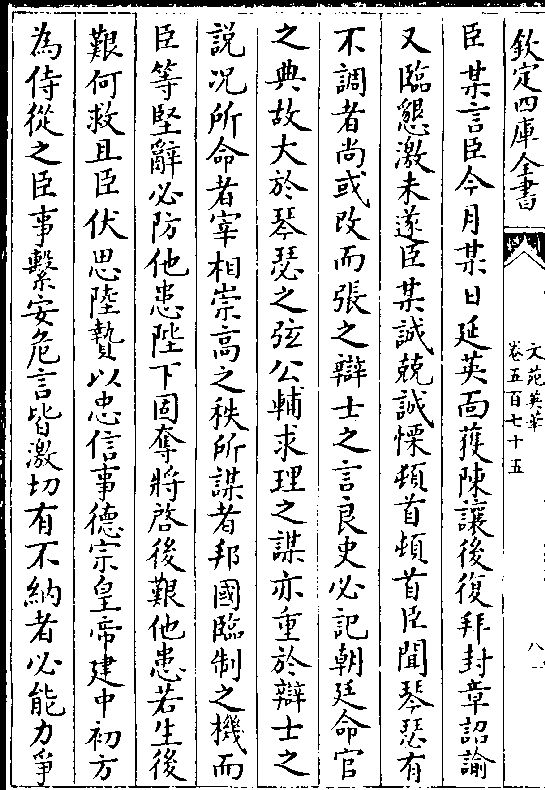 欽定四庫全書
文苑英華
卷五百七十五
八
臣某言臣今月某日延英面獲陳讓後復拜封章詔諭
又臨懇激未遂臣某誠兢誠慄頓首頓首臣聞琴瑟有
不調者尚或改而張之辯士之言良史必記朝廷命官
之典故大於琴瑟之弦公輔求理之謀亦重於辯士之
說况所命者宰相崇高之秩所謀者邦國臨制之機而
臣等堅辭必防他患陛下固奪將啓後艱他患若生後
艱何救且臣伏思陸贄以忠信事德宗皇帝建中初方
為侍從之臣事繫安危言皆激切有不納者必能力爭